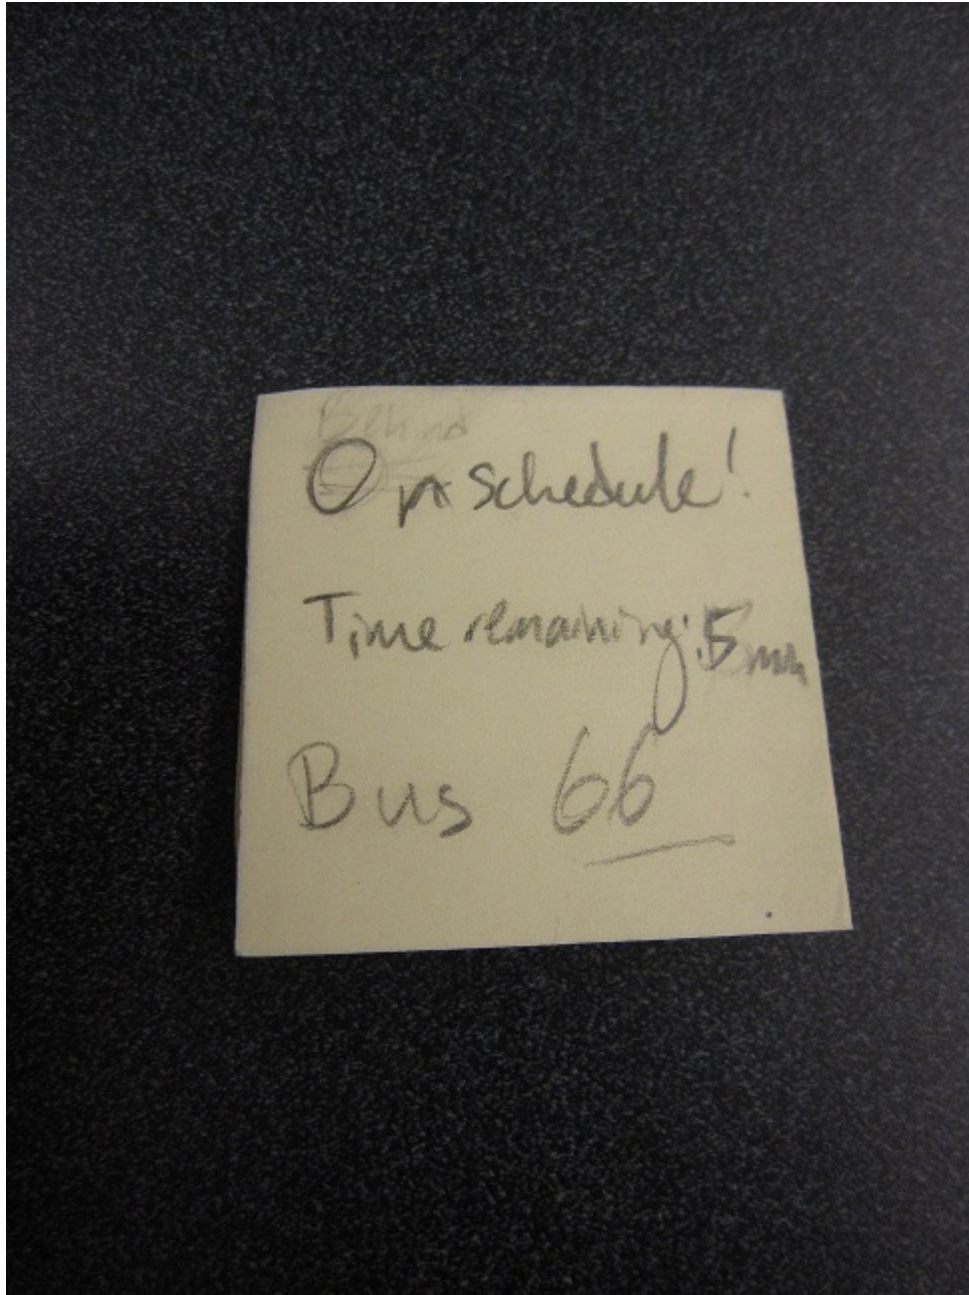 Behind
On schedule!
Time remaining: 5 min
Bus 66